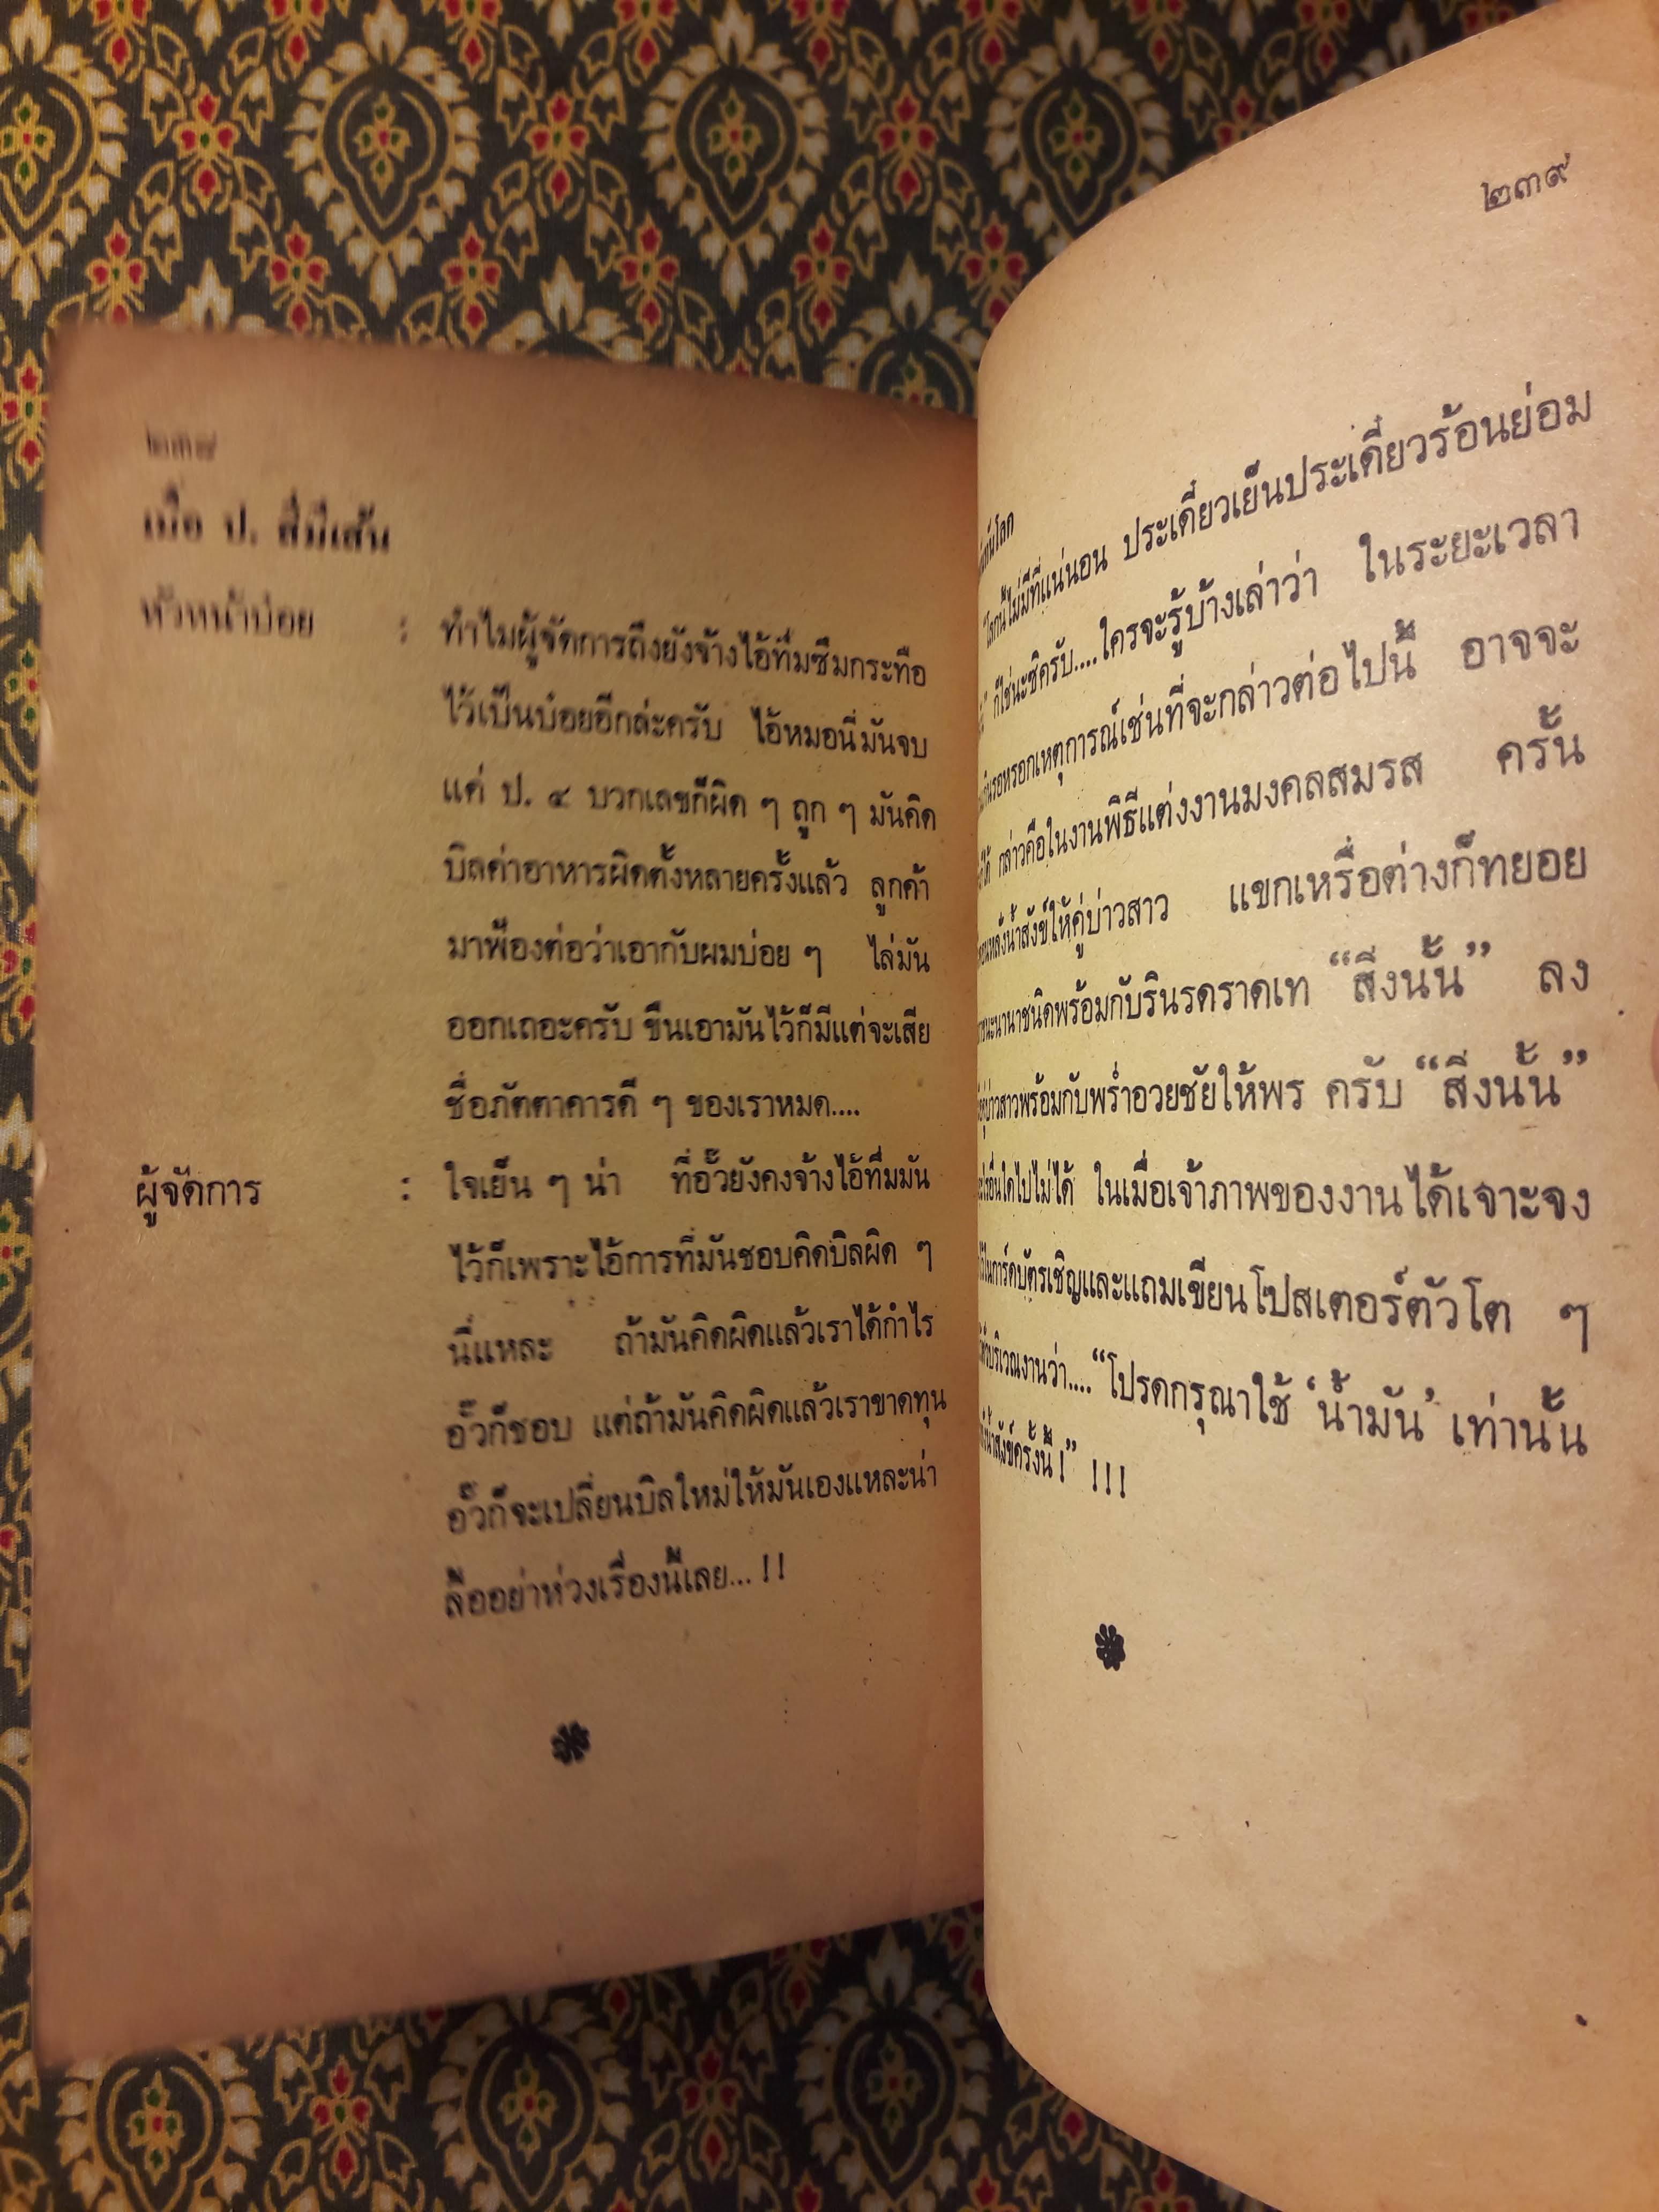 ๒๓๗
เมื่อ ป. สี่มีเส้น
หัวหน้าบ๋อย : ทำไมผู้จัดการถึงยังจ้างไอ้ทึ่มซึมกระทือ
ไว้เป็นบ๋อยอีกล่ะครับ ไอ้หมอนี่มันจบ
แค่ ป. ๔ บวกเลขก็ผิด ๆ ถูก ๆ มันคิด
บิลค่าอาหารผิดตั้งหลายครั้งแล้ว ลูกค้า
มาฟ้องต่อว่าเอากับผมบ่อย ๆ ไล่มัน
ออกเถอะครับ ขืนเอามันไว้ก็มีแต่จะเสีย
ชื่อภัตตาคารดี ๆ ของเราหมด....
ผู้จัดการ : ใจเย็น ๆ น่า ที่อั๊วยังคงจ้างไอ้ทึ่มมัน
ไว้ก็เพราะไอ้การที่มันชอบคิดบิลผิด ๆ
นี่แหละ ถ้ามันคิดผิดแล้วเราได้กำไร
อั๊วก็ชอบ แต่ถ้ามันคิดผิดแล้วเราขาดทุน
อั๊วก็จะเปลี่ยนบิลใหม่ให้มันเองแหละน่า
ลื้ออย่าห่วงเรื่องนี้เลย... !!
๒๓๙
โลกนี้ไม่มีที่แน่นอน ประเดี๋ยวเย็นประเดี๋ยวร้อนย่อม
ก็ใช่นะซิครับ....ใครจะรู้บ้างเล่าว่า ในระยะเวลา
เหตุการณ์เช่นที่จะกล่าวต่อไปนี้ อาจจะ
ได้ กล่าวคือในงานพิธีแต่งงานมงคลสมรส ครั้น
หลั่งน้ำสังข์ให้คู่บ่าวสาว แขกเหรื่อต่างก็ทยอย
นานาชนิดพร้อมกับรินรดราดเท “สิ่งนั้น” ลง
คู่บ่าวสาวพร้อมกับพร่ำอวยชัยให้พร ครับ “สิ่งนั้น”
อื่นใดไปไม่ได้ ในเมื่อเจ้าภาพของงานได้เจาะจง
ไว้ในการ์ดบัตรเชิญและแถมเขียนโปสเตอร์ตัวโต ๆ
บริเวณงานว่า....“โปรดกรุณาใช้ ‘น้ำมัน’ เท่านั้น
น้ำสังข์ครั้งนี้ !” !!!